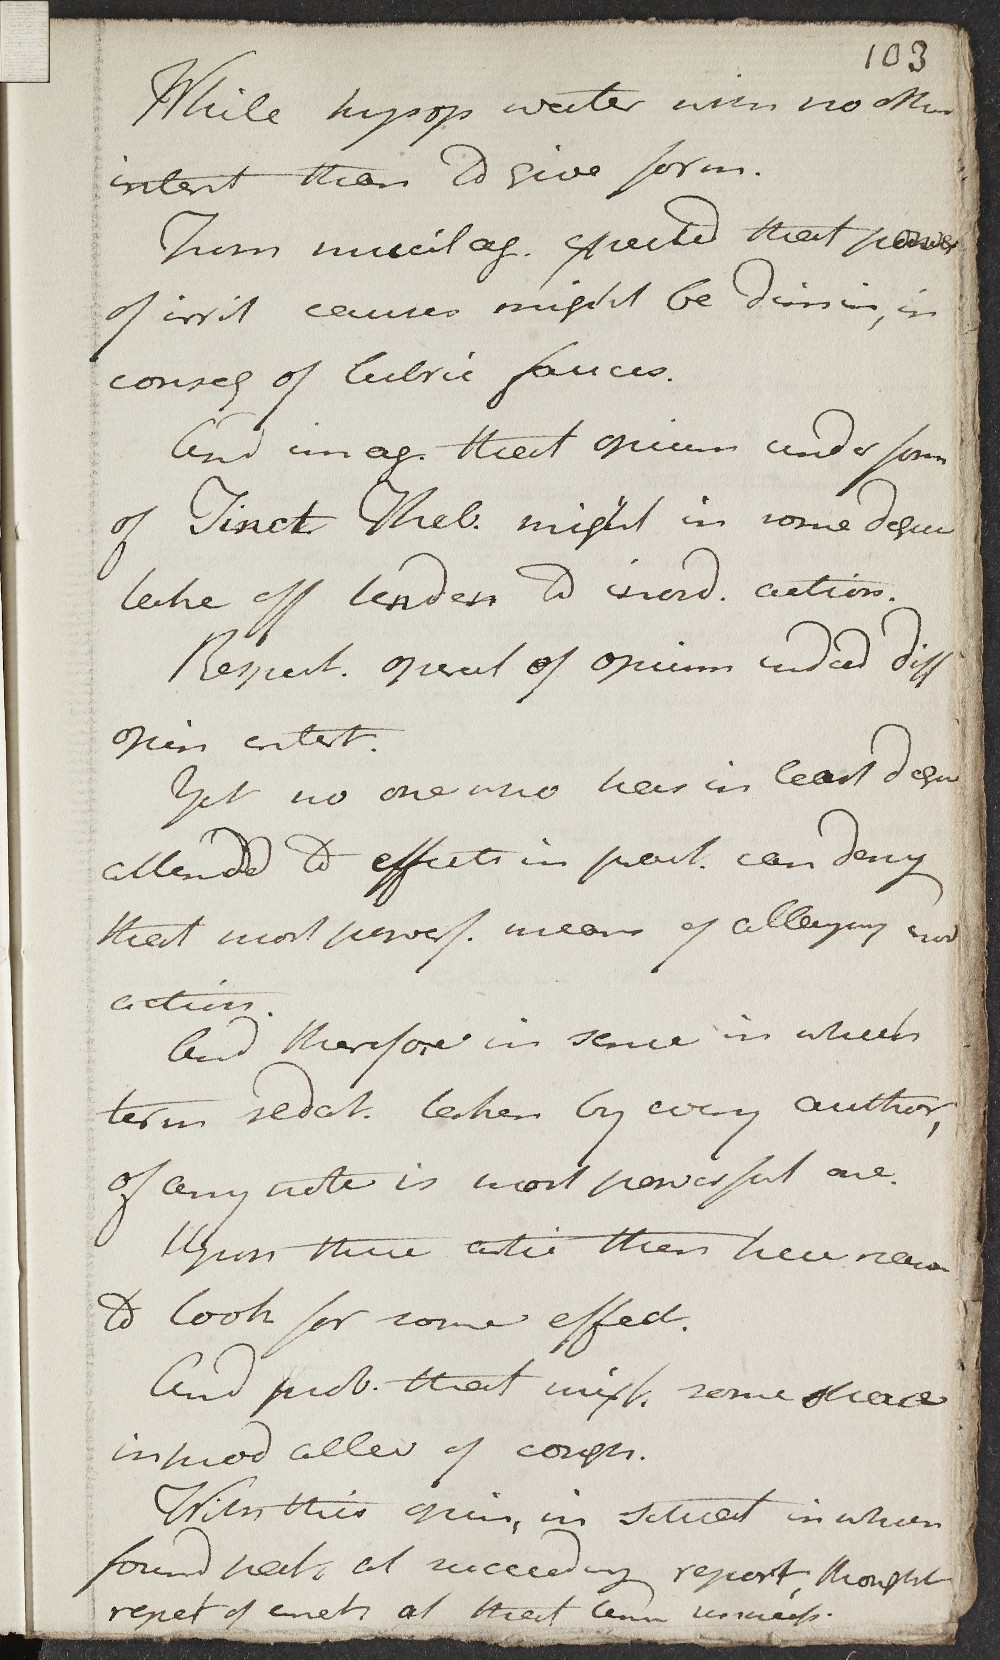 103
While hysop water with no other
intent than to give form.
From mucilag. expected that power
of irrit causes might be dimin, in
conseq of lubric fauces.
And imag. that opium under form
of Tinct Theb. might in some degree
take off tenden to inord. action.
Respect. operat of opium indeed diff
opin entert.
Yet no one who has in least degree
attended to effects in pract. can deny
that most powerf. means of allaying inord
action.
And therefore in sense in which
term sedat. taken by every author,
of any note is most powerful one.
Upon these artic then have reason
to look for some effect.
And prob. that might. some share
in prod allev of cough.
With this opin, in situat in which
found pat. at succeeding report, thought
repet of emet at that time unnecess.